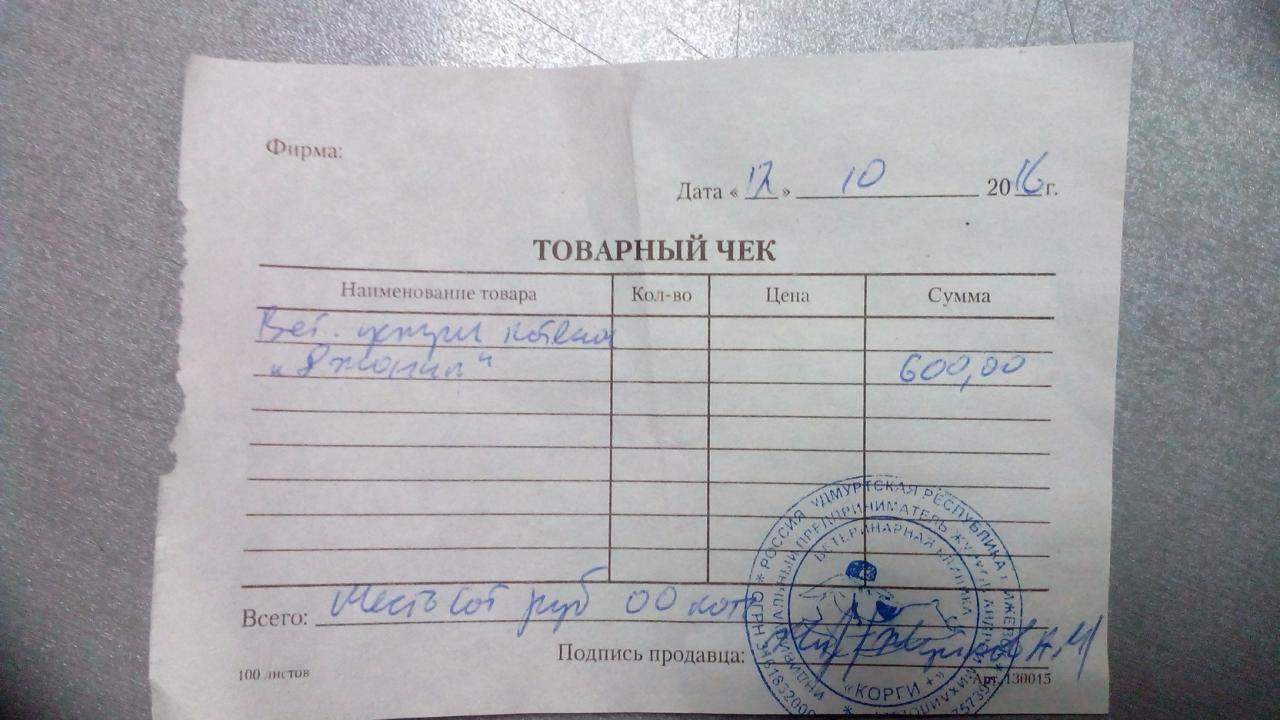 Фирма:
Дата « 12 » 10 2016 г.
ТОВАРНЫЙ ЧЕК
Наименование товара Кол-во Цена Сумма
Вет. услуги котенка
"Джонни" 600,00
Всего: Шестьсот руб 00 коп
Подпись продавца:
100 листов
Арт. 130015
РОССИЯ УДМУРТСКАЯ РЕСПУБЛИКА г. ИЖЕВСК
ИНДИВИДУАЛЬНЫЙ ПРЕДПРИНИМАТЕЛЬ
ВЕТЕРИНАРНАЯ КЛИНИКА
«КОРГИ +»